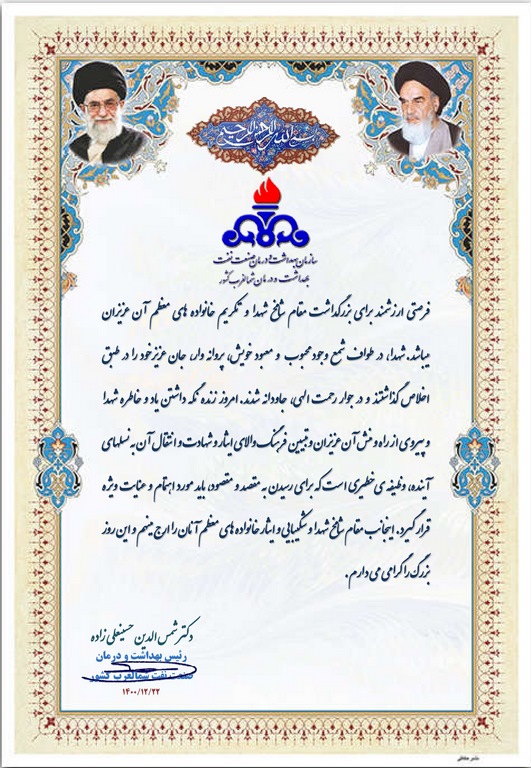 بسم الله الرحمن الرحیم
سازمان بهداشت و درمان صنعت نفت
بهداشت و درمان شمالغرب کشور
فرصتی ارزشمند برای بزرگداشت مقام شامخ شهدا و تکریم خانواده های معظم آن عزیزان
میباشد. شهدا، در طواف شمع وجود محبوب و معبود خویش، پروانه وار، جان عزیز خود را در طبق
اخلاص گذاشتند و در جوار رحمت الهی، جاودانه شدند. امروز زنده نگه داشتن یاد و خاطره شهدا
و پیروی از راه و منش آن عزیزان و تبیین فرهنگ والای ایثار و شهادت و انتقال آن به نسلهای
آینده، وظیفه ی خطیری است که برای رسیدن به مقصد و مقصود، باید مورد اهتمام و عنایت ویژه
قرار گیرد. اینجانب مقام شامخ شهدا و شکیبایی و ایثار خانواده های معظم آنان را ارج مینهم و این روز
بزرگ را گرامی می دارم.
دکتر شمس الدین حسینعلی زاده
رئیس بهداشت و درمان
صنعت نفت شمالغرب کشور
۱۴۰۰/۱۲/۲۲